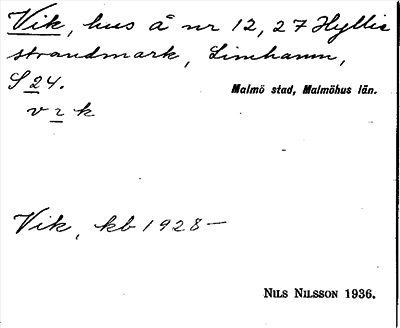 Vik, hus å nr 12, 27 Hyllie
strandmark, Limhamn,
S 24.
Malmö stad, Malmöhus län.
v i k
Vik, kb 1928—
NILS NILSSON 1936.